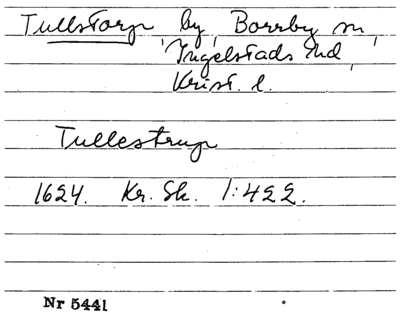 Tullstorp by, Borrby sn,
Ingelstads hd,
Krist. l.
Tullestrup
1624. Kr. Sk. 1:422.
Nr 5441